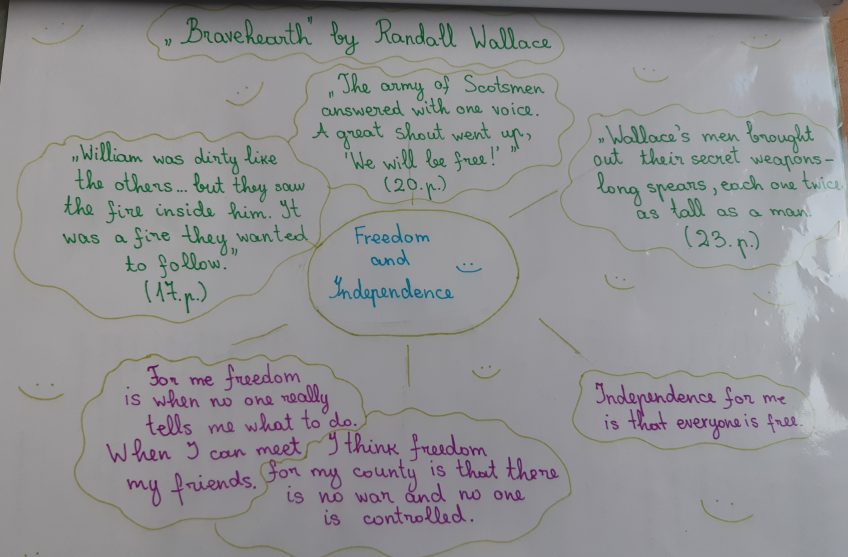 „Bravehearth" by Randall Wallace
„The army of Scotsmen
answered with one voice.
A great shout went up,
'We will be free!' "
(20.p.)
„William was dirty like
the others... but they saw
the fire inside him. It
was a fire they wanted
to follow."
(17.p.)
„Wallace's men brought
out their secret weapons-
long spears, each one twice
as tall as a man.
(23.p.)
Freedom
and
Independence
For me freedom
is when no one really
tells me what to do.
When I can meet
my friends.
I think freedom
for my county is that there
is no war and no one
is controlled.
Independence for me
is that everyone is free.